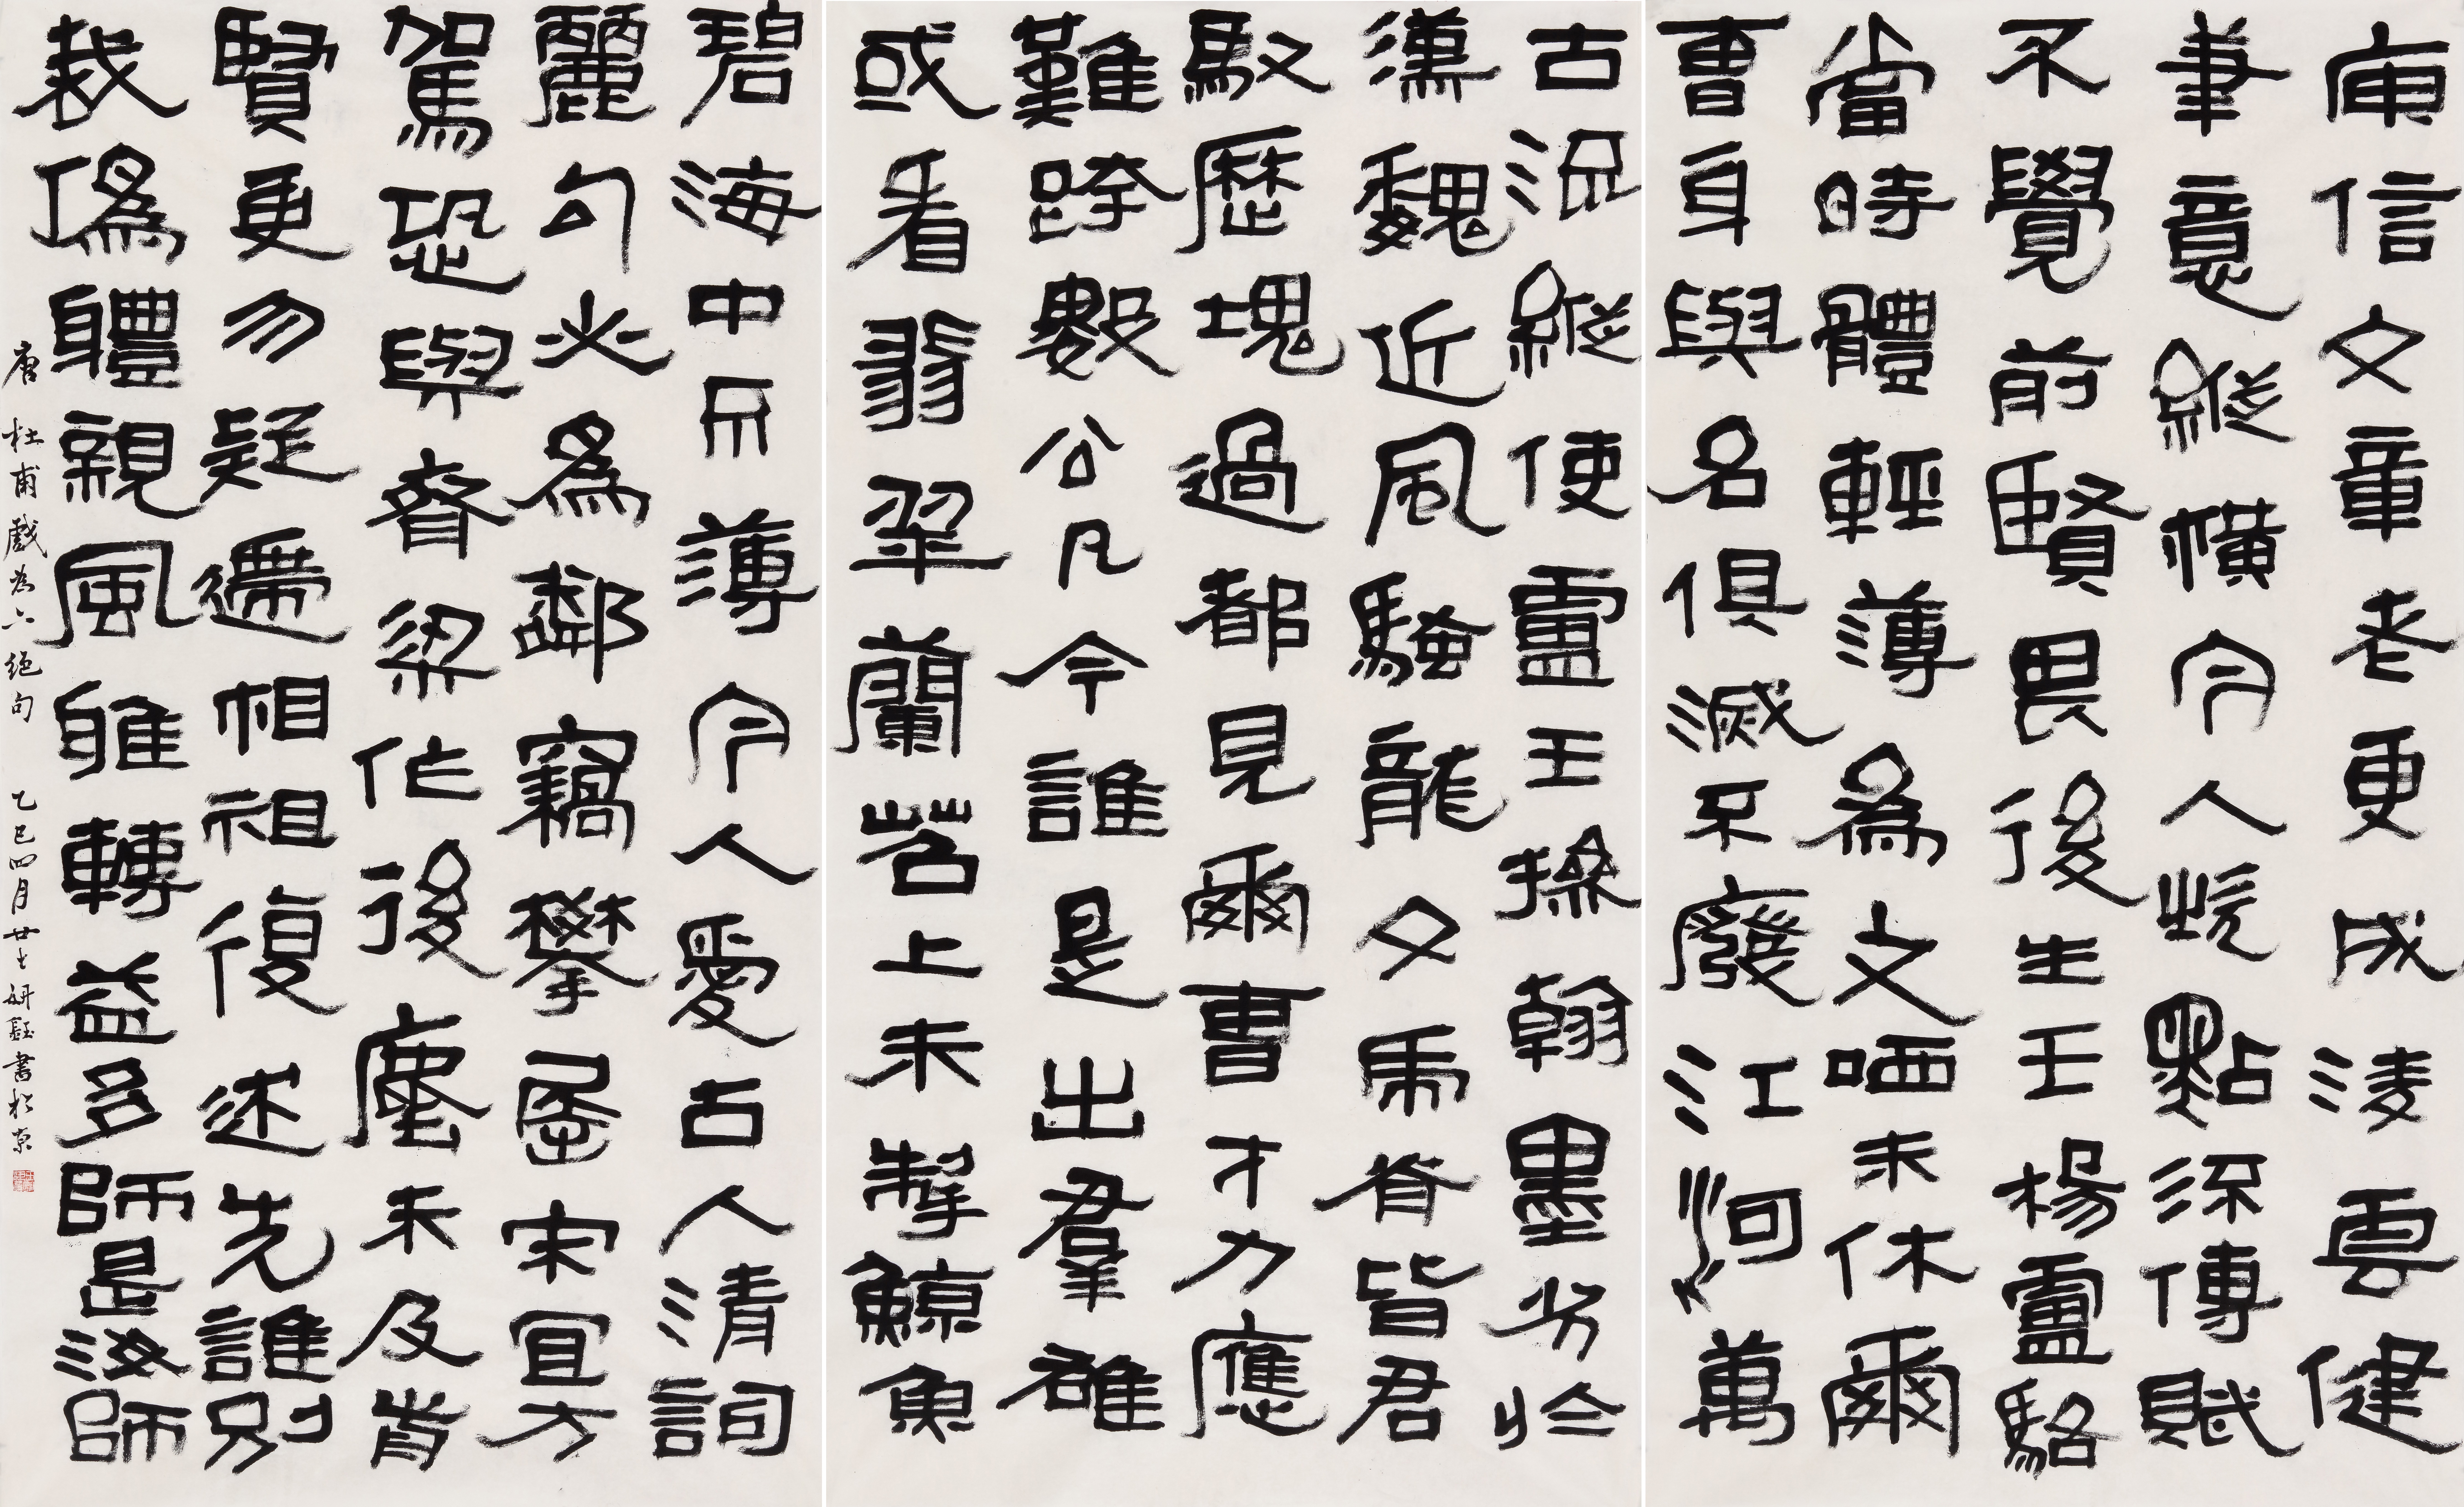 庾信文章老更成淩雲健
筆意縱橫今人嗤點流傳賦
不覺前賢畏後生王楊盧駱
當時體輕薄爲文哂未休爾
曹身與名俱滅不廢江河萬
古流縱使盧王操翰墨劣於
漢魏近風騷龍文虎脊皆君
馭歷塊過都見爾曹才力應
難跨數公凡今誰是出羣雄
或看翡翠蘭苕上未掣鯨魚
碧海中不薄今人愛古人清詞
麗句必爲鄰竊攀屈宋宜方
駕恐與齊梁作後塵未及前
賢更勿疑遞相祖復述先誰別
裁僞體親風雅轉益多師是汝師
唐 杜甫戲為六絕句 乙巳四月廿 書於京